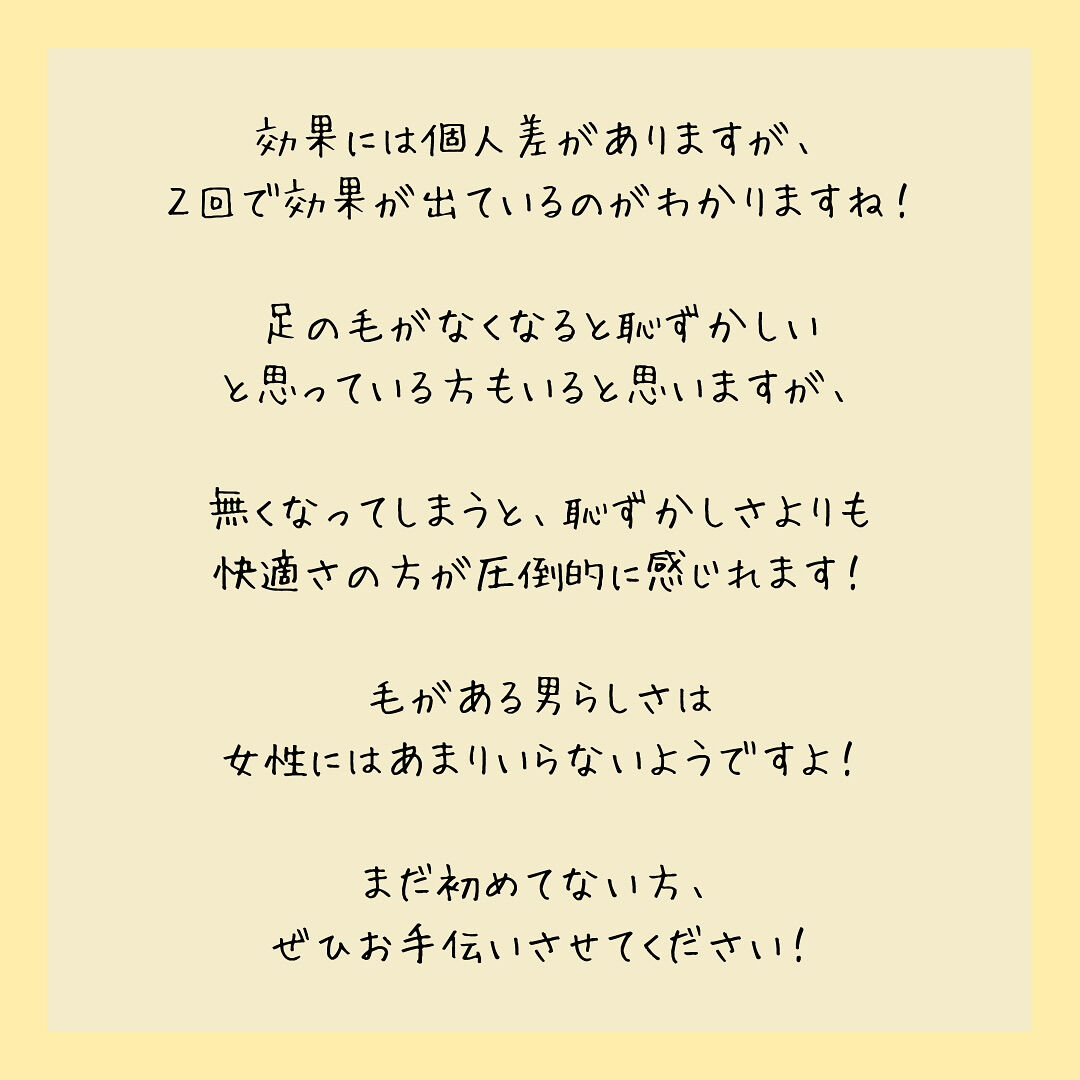 効果には個人差がありますが、
2回で効果が出ているのがわかりますね！
足の毛がなくなると恥ずかしい
と思っている方もいると思いますが、
無くなってしまうと、恥ずかしさよりも
快適さの方が圧倒的に感じれます！
毛がある男らしさは
女性にはあまりいらないようですよ！
まだ初めてない方、
ぜひお手伝いさせてください！